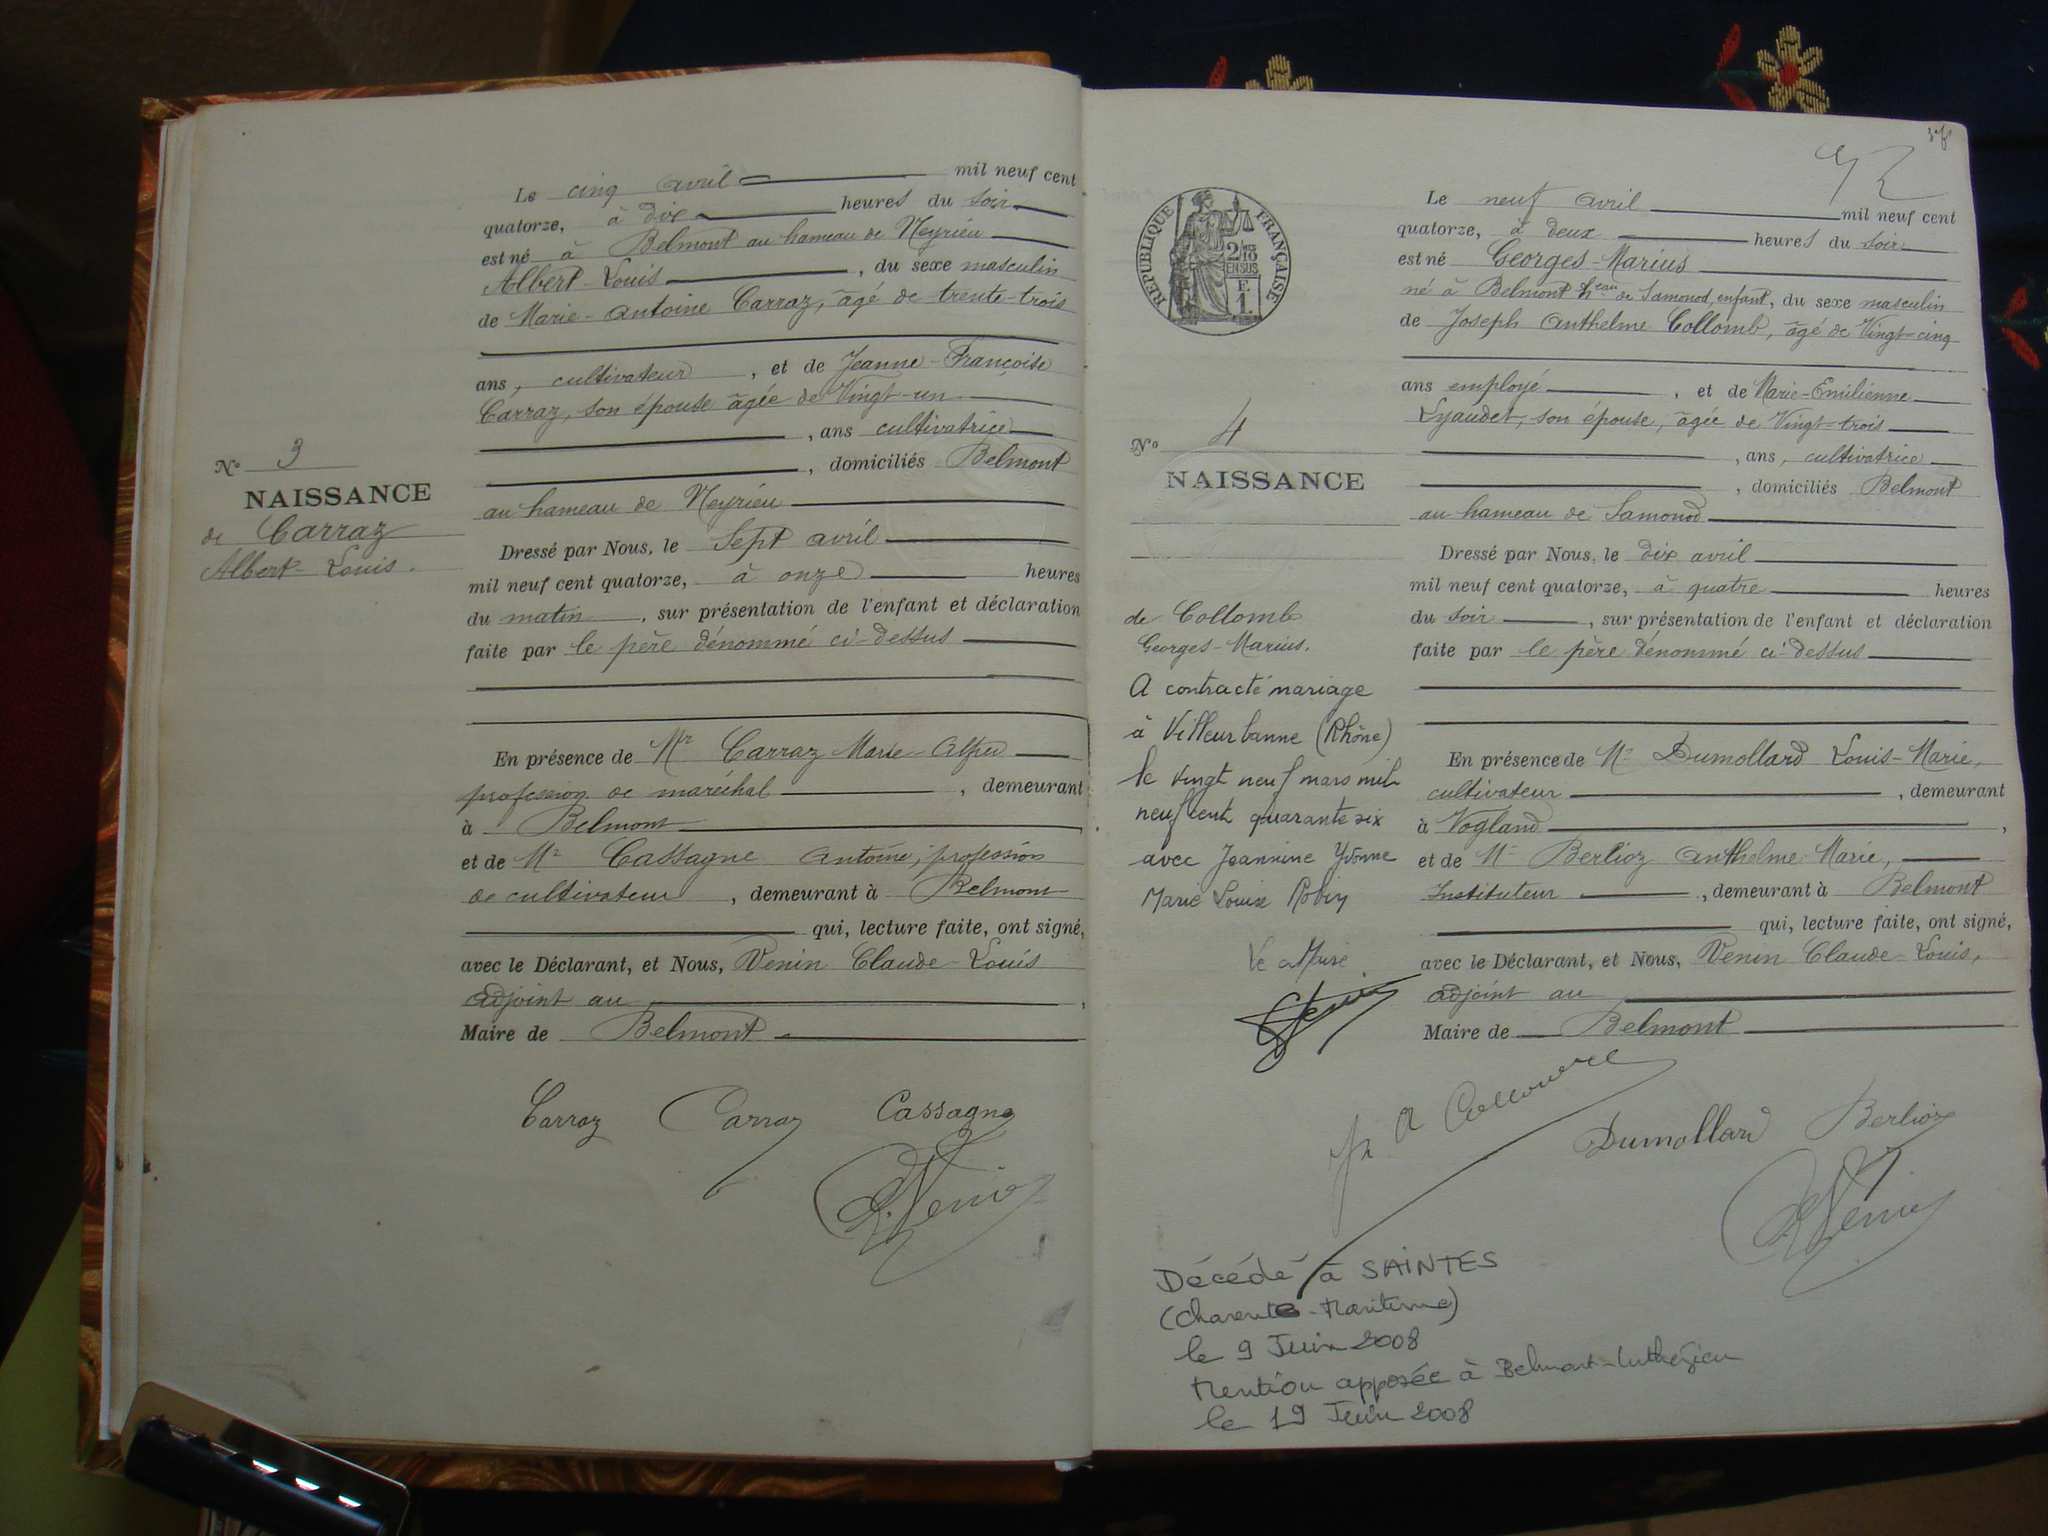 Le cinq avril mil neuf cent
quatorze, à dix heures du soir
est né à Belmont au hameau de Neyrieu
Albert-Louis, du sexe masculin
de Marie-Antoine Carraz, âgé de trente-trois
ans, cultivateur, et de Jeanne-Françoise
Carraz, son épouse âgée de Vingt-un
, ans cultivatrice
, domiciliés Belmont
au hameau de Neyrieu
N° 3
NAISSANCE
de Carraz
Albert-Louis.
Dressé par Nous, le Sept avril
mil neuf cent quatorze, à onze heures
du matin, sur présentation de l'enfant et déclaration
faite par le père dénommé ci-dessus
En présence de Mr Carraz Marie-Alfred
profession de maréchal, demeurant
à Belmont,
et de Mr Cassagne Antoine, profession
de cultivateur, demeurant à Belmont
qui, lecture faite, ont signé,
avec le Déclarant, et Nous, Venin Claude-Louis
adjoint au,
Maire de Belmont
Carraz Carraz Cassagne
Venin
REPUBLIQUE FRANÇAISE
2/10
EN SUS
F.
1.
Le neuf avril mil neuf cent
quatorze, à deux heures du soir
est né Georges-Marius
né à Belmont heau de Samonod, enfant, du sexe masculin
de Joseph Anthelme Collomb, âgé de Vingt-cinq
ans employé, et de Marie-Emilienne
Lyaudet, son épouse, âgée de Vingt-trois
, ans, cultivatrice
, domiciliés Belmont
au hameau de Samonod
N° 4
NAISSANCE
de Collomb
Georges-Marius.
A contracté mariage
à Villeurbanne (Rhône)
le vingt neuf mars mil
neuf cent quarante six
avec Jeannine Yvonne
Marie Louise Robin
Le Maire
Dressé par Nous, le dix avril
mil neuf cent quatorze, à quatre heures
du soir, sur présentation de l'enfant et déclaration
faite par le père dénommé ci-dessus
En présence de Mr Dumollard Louis-Marie,
cultivateur, demeurant
à Vogland,
et de Mr Berlioz Anthelme-Marie,
Instituteur, demeurant à Belmont
qui, lecture faite, ont signé,
avec le Déclarant, et Nous, Venin Claude-Louis,
adjoint au
Maire de Belmont
Dumollard Berlioz
Venin
Décédé à SAINTES
(Charente-Maritime)
le 9 Juin 2008
Mention apposée à Belmont-Luthézieu
le 19 Juin 2008